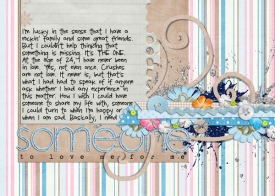 I'm lucky in the sense that I have a
rockin' family and some great friends.
But I couldn't help thinking that
something is missing. It's THE ONE.
At the age of 24, I have never been
in love. Yes, not even once. Crushes
are not love. It never is, but that's
what I had had to speak of if anyone
ask whether I had any experience in
this matter. How I wish I could have
someone to share my life with, someone
I could turn to when I'm happy or
when I am sad. Basically, I need
someone
to love me for me